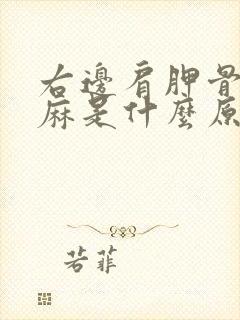 右邊肩胛骨
麻是什麼原
若菲